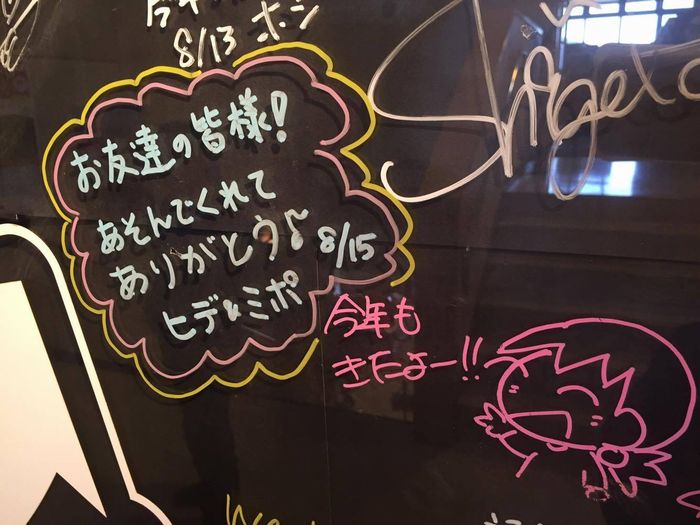 8/13 ポン
Shigeto
お友達の皆様!
あそんでくれて
ありがとう♪ 8/15
ヒデ&ミポ
今年も
きたよー!!